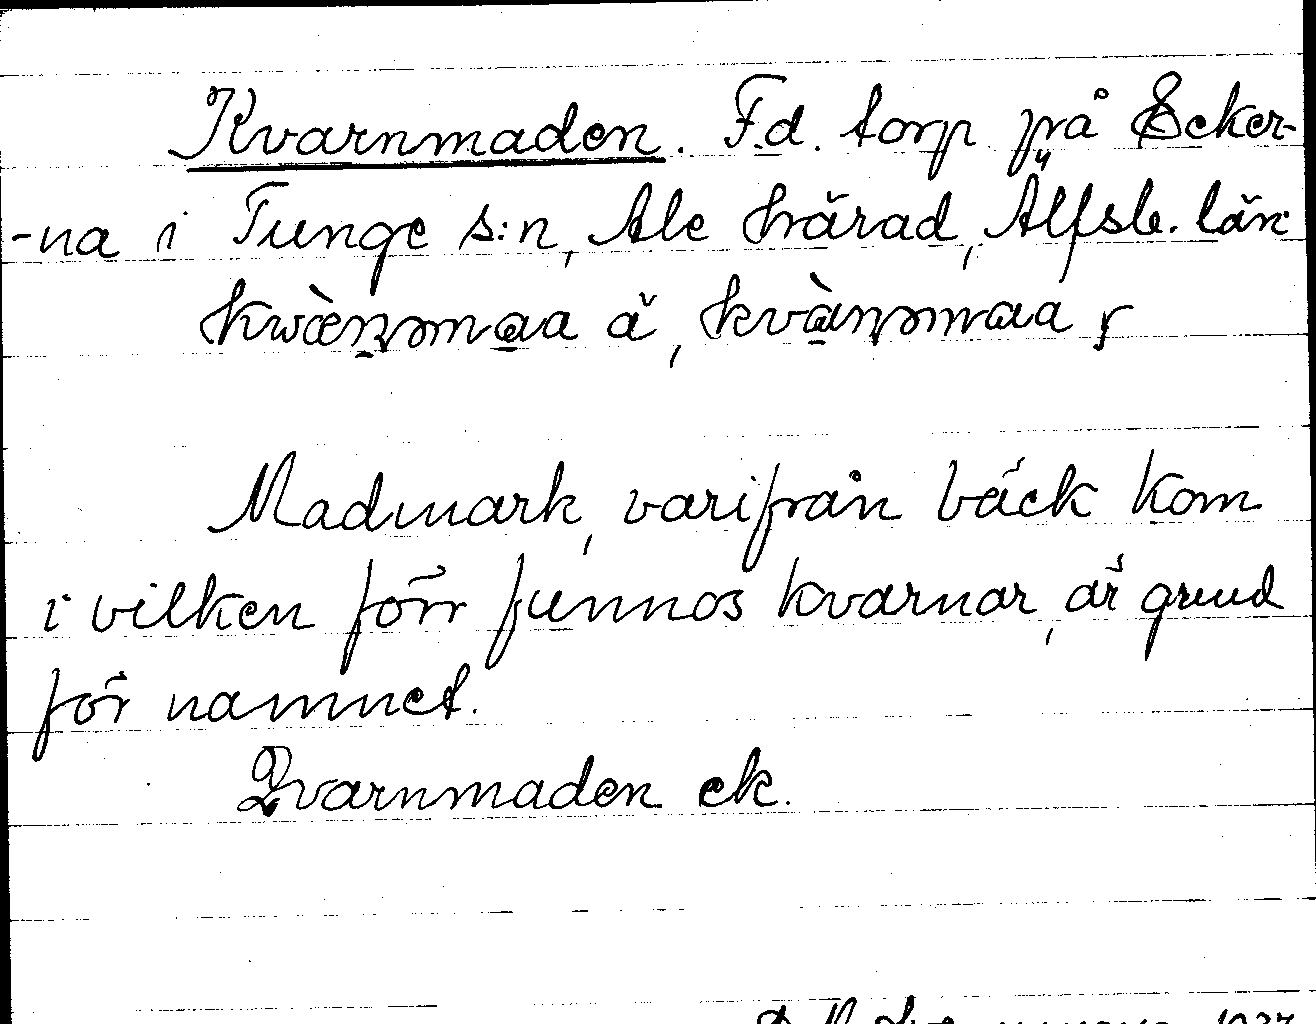 Kvarnmaden. F.d. torp på Ecker-
-na i Tunge s:n, Ale härad, Älfsb. län
kwæṇmaa ä, kvàṇmaa r
Madmark, varifrån bäck kom
i vilken förr funnos kvarnar, är grund
för namnet.
Qvarnmaden ek.